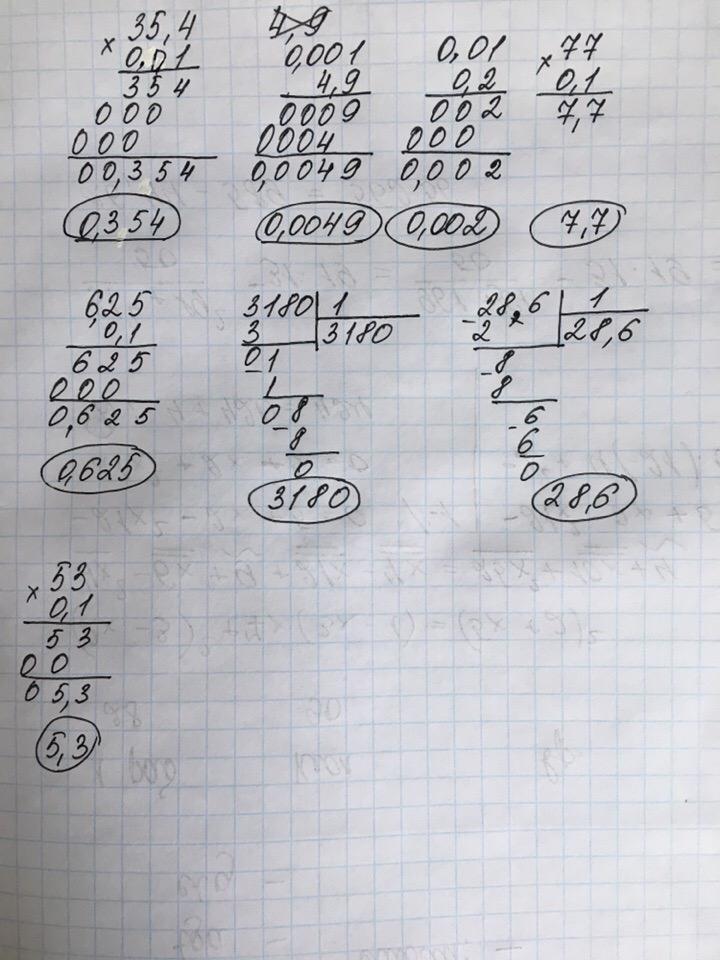 35,4
× 0,01
354
000
000
00,354
0,354
4,9
0,001
4,9
0009
0004
0,0049
0,0049
0,01
0,2
002
000
0,002
0,002
× 77
0,1
7,7
7,7
6,25
0,1
625
000
0,625
0,625
3180 | 1
3 3180
01
1
08
- 8
0
3180
- 28,6 | 1
2 28,6
- 8
8
- 6
6
0
28,6
× 53
0,1
53
00
05,3
5,3